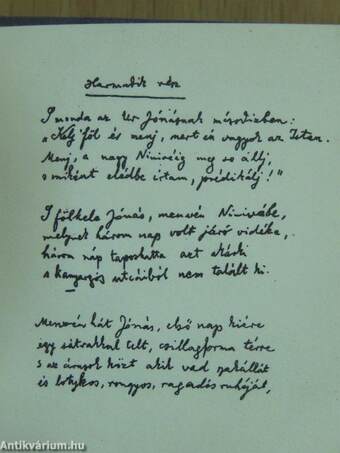 Harmadik rész
S monda az Úr Jónásnak másodszor:
„Kelj föl és menj, mert én vagyok az Isten.
Menj, a nagy Ninivéig meg se állj,
s miként elédbe irtam, prédikálj!"
S fölkele Jónás, menvén Ninivébe,
melynek három nap volt járó vidéke,
három nap taposhatta azt akárki
s kanyargós utcáiból nem talált ki.
Menvén hát Jónás, első nap kiére
egy sátrakkal telt, csillagforma térre
s az árusok közt akik vad szakállát
és botykos, rongyos, ragadós ruháját,
Antikvárium.hu